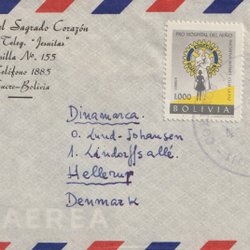 el Sagrado Corazón
Teleg. "Jesuitas"
silla Nº. 155
Teléfono 1885
Sucre-Bolivia
PRO HOSPITAL DEL NIÑO
1.000
BOLIVIA
Dinamarca.
O. Lund-Johansen
1. Lándorffsallé.
Hellerup
Denmark
AEREA